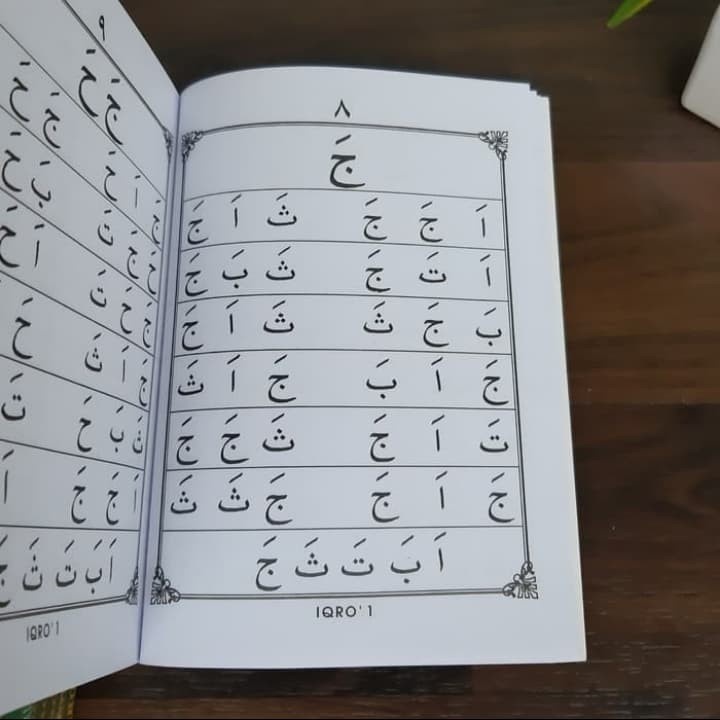 ٨
جَ
اَ جَ جَ ثَ اَ جَ
اَ تَ جَ ثَ بَ جَ
بَ جَ ثَ ثَ اَ جَ
جَ اَ بَ جَ اَ ثَ
تَ اَ جَ ثَ جَ جَ
جَ اَ جَ جَ ثَ ثَ
اَ بَ تَ ثَ جَ
IQRO' 1
٩
جَ حَ
اَ حَ جَ حَ
تَ بَ حَ
تَ اَ حَ
جَ اَ ثَ حَ
ثَ بَ حَ تَ
اَ جَ جَ اَ
اَ بَ تَ ثَ جَ
IQRO' 1